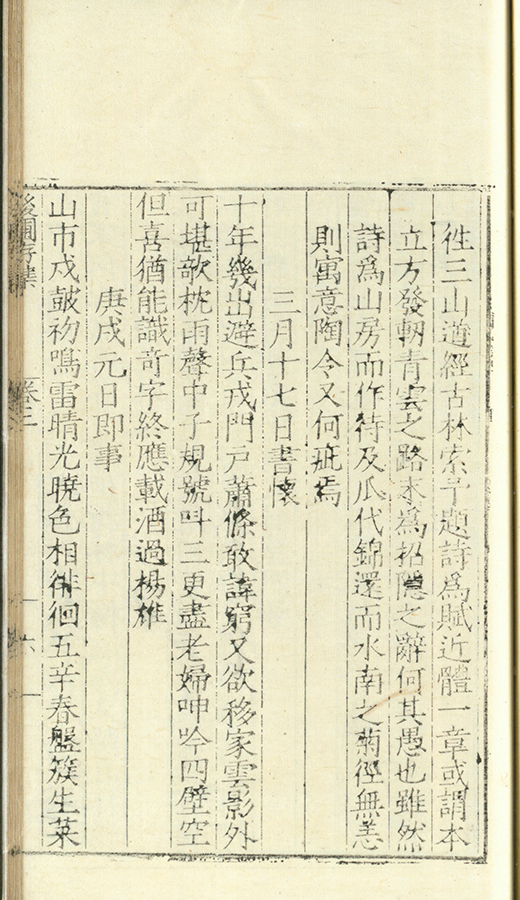 徃三山道經古林索予題詩爲賦近體一章或謂本
立方發軔青雲之路未爲招隱之辭何其愚也雖然
詩爲山房而作待及瓜代錦還而水南之菊徑無恙
則寓意陶令又何疵焉
三月十七日書懷
十年幾出避兵戎門戸蕭條敢諱窮又欲移家雲影外
可堪欹枕雨聲中子規號呌三更盡老婦呻吟四壁空
但喜猶能識竒字終應載酒過楊雄
庚戌元日即事
山市戍皷初鳴雷晴光曉色相徘徊五辛春盤簇生菜
後圃存藁 卷三 六